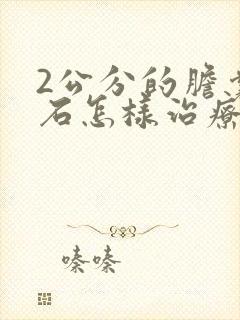 2公分的膽
石怎樣治療
嗪嗪